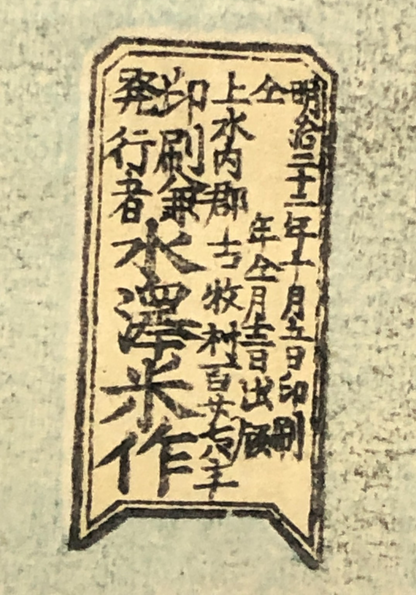 明治二十二年十月五日印刷
仝年仝月十二日出版
上水内郡古牧村百廿六八年
印刷兼
発行者
水澤米作